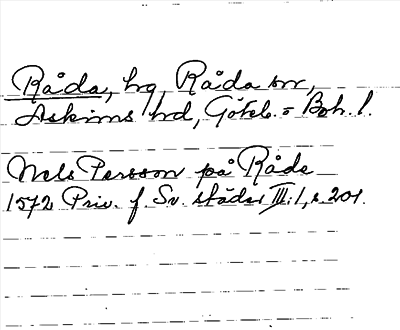 Råda, hg, Råda sn,
Askims hd, Göteb. = Boh. l.
Nels Persson på Råde
1572 Priv. f. Sv. städer III:1, s. 201.